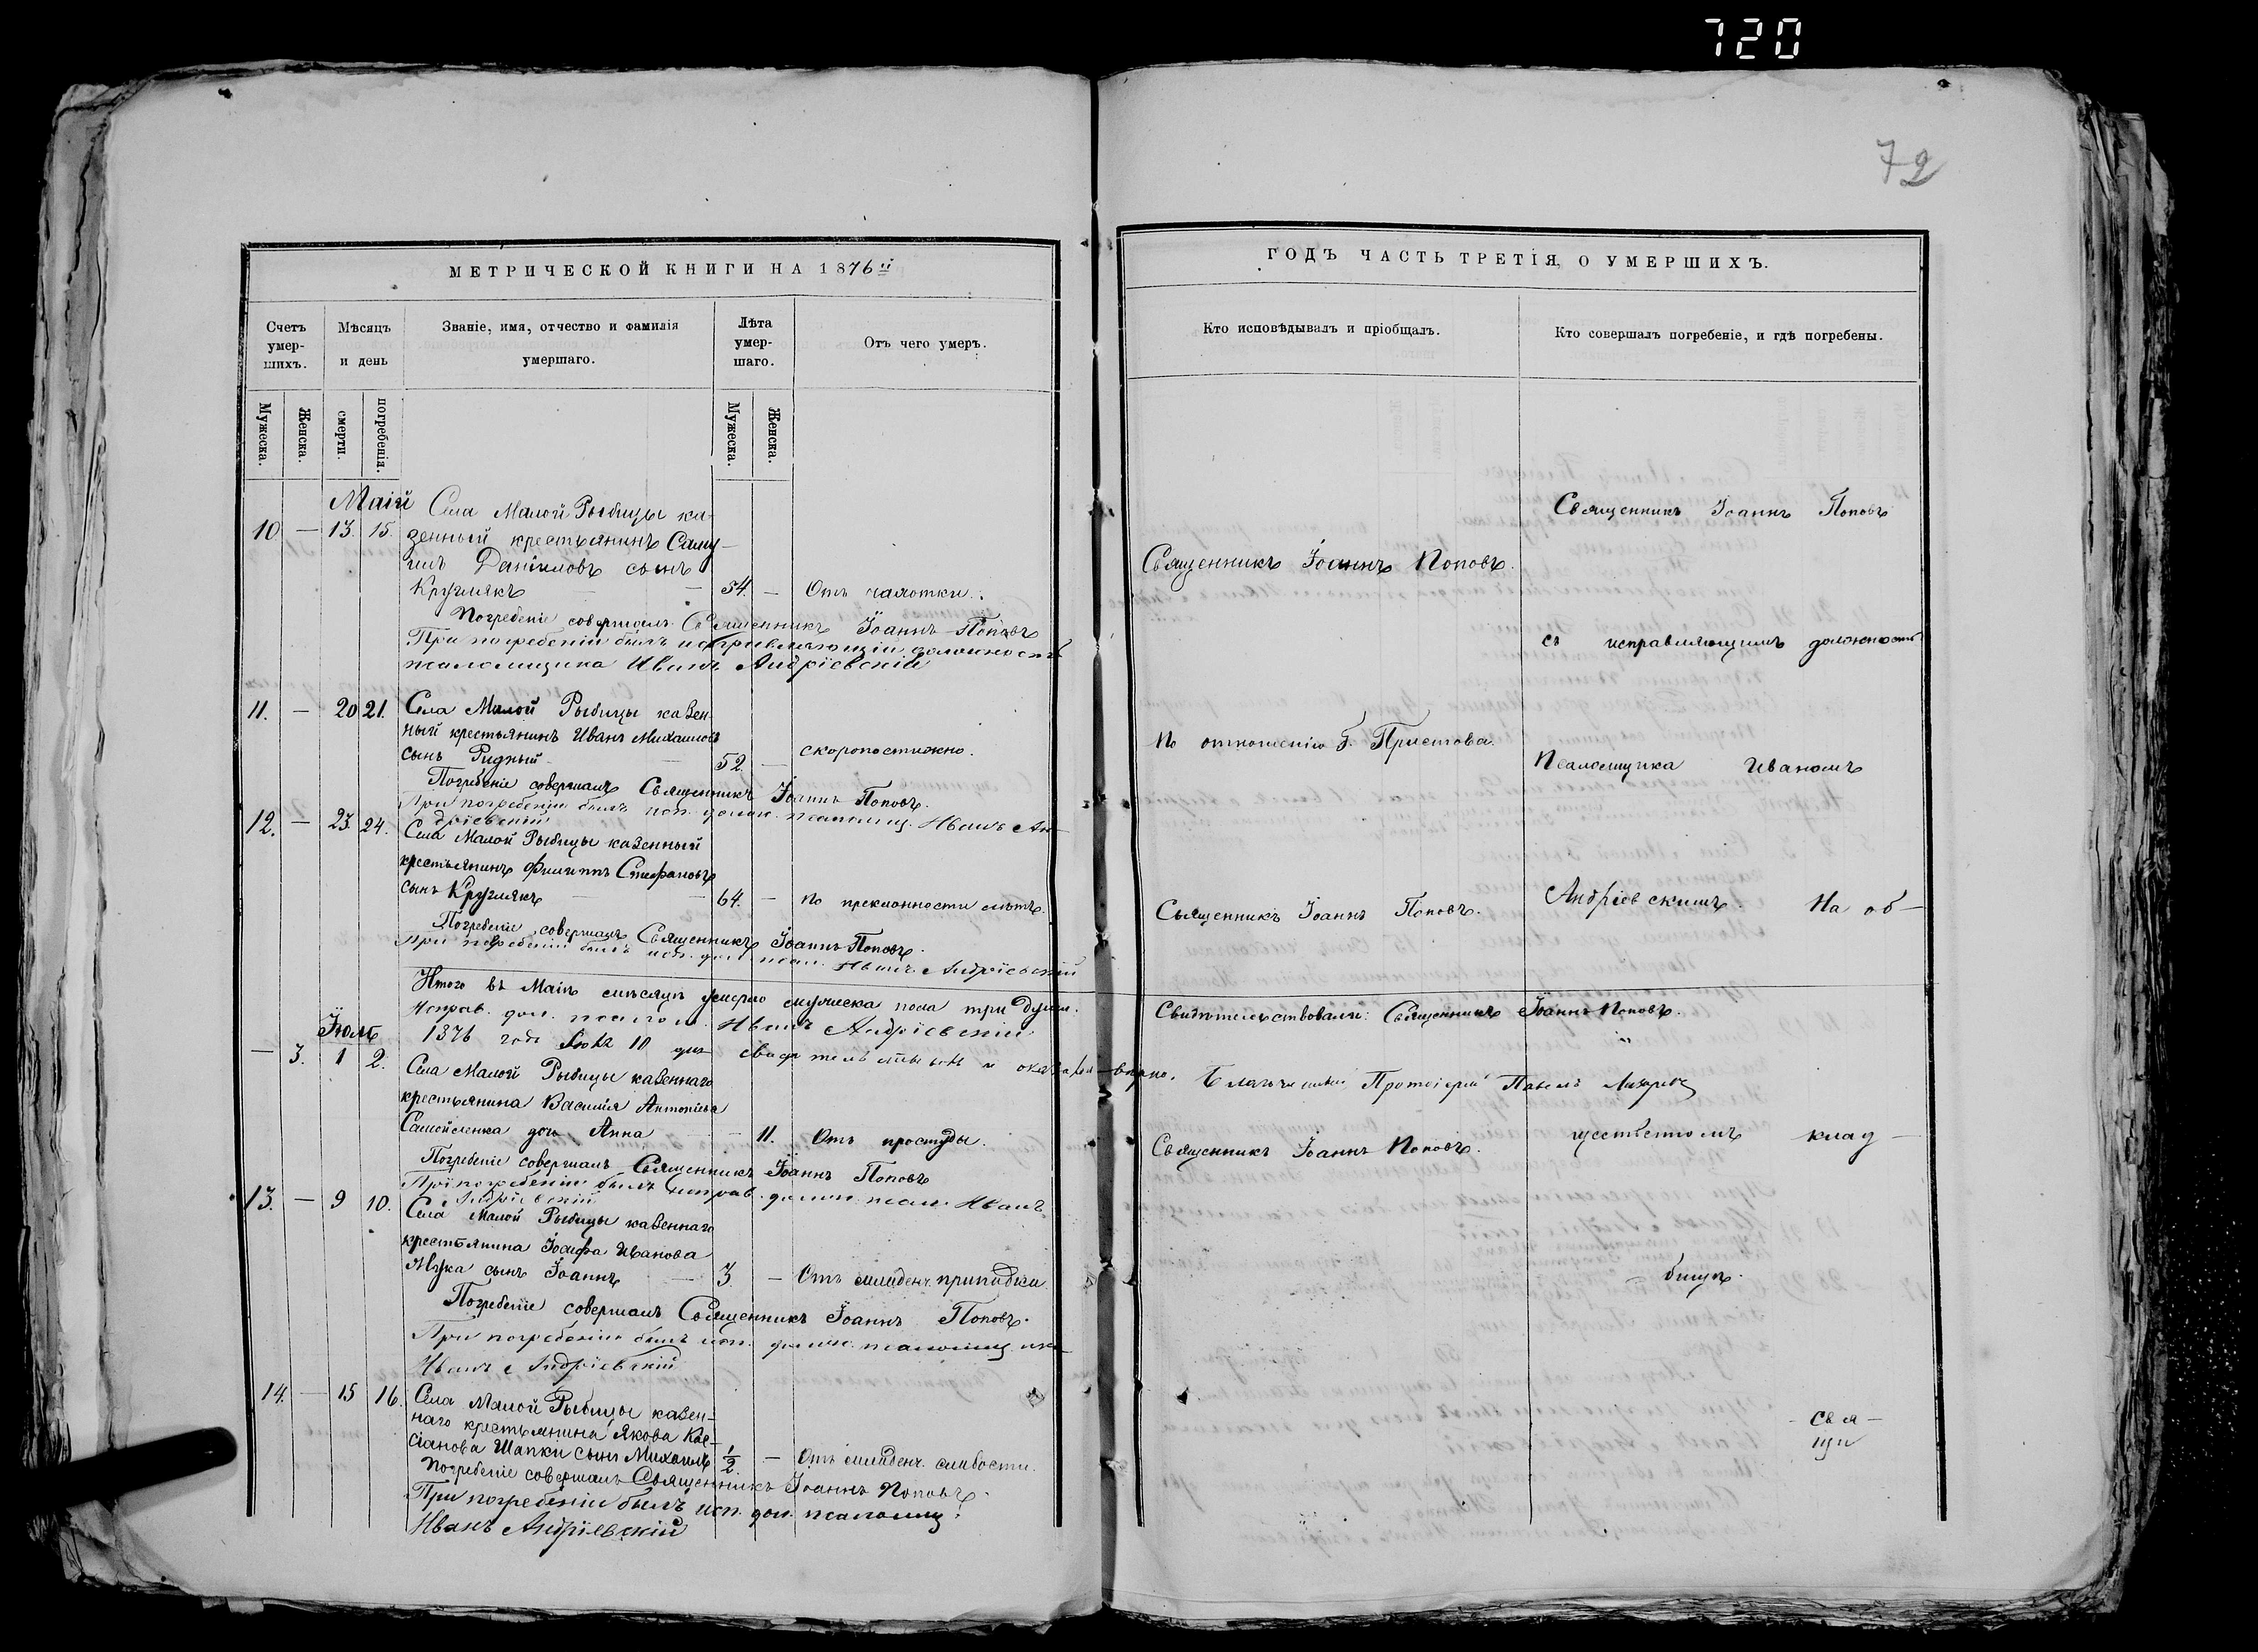 720
72
МЕТРИЧЕСКОЙ КНИГИ НА 1876й
ГОДЪ ЧАСТЬ ТРЕТІЯ, О УМЕРШИХЪ.
Счетъ умер-
шихъ.
Мѣсяцъ
и день
Званіе, имя, отчество и фамилія
умершаго.
Лѣта
умер-
шаго.
Отъ чего умеръ.
Кто исповѣдывалъ и пріобщалъ.
Кто совершалъ погребеніе, и гдѣ погребены.
Мужеска.
Женска.
смерти.
погребенія.
Мужеска.
Женска.
Маій
10 — 13. 15. Села Малой Рыбицы ка-
зенный крестьянинъ Саму-
илъ Даніиловъ сынъ
Круглякъ — 54. — Отъ чахотки.
Священникъ Іоаннъ Поповъ.
Священникъ Іоаннъ Поповъ
Погребеніе совершалъ Священникъ Іоаннъ Поповъ
При погребеніи былъ исправляющій должность
псаломщика Иванъ Андріевскій
съ исправляющимъ должность
11. — 20 21. Села Малой Рыбицы казен-
ный крестьянинъ Иванъ Михаиловъ
сынъ Ридный — 52. — скоропостижно.
По отношенію Г. Пристава.
Псаломщика Иваномъ
Погребеніе совершалъ Священникъ Іоаннъ Поповъ.
При погребеніи былъ исп. долж. псаломщ. Иванъ Ан-
дріевскій
12. — 23. 24. Села Малой Рыбицы казенный
крестьянинъ Филиппъ Стефановъ
сынъ Круглякъ — 64. — По преклонности лѣтъ.
Священникъ Іоаннъ Поповъ.
Андріевскимъ. На об-
Погребеніе совершалъ Священникъ Іоаннъ Поповъ.
При погребеніи былъ исп. дол. псал. Иванъ Андріевскій
Итого въ Маіѣ мѣсяцѣ умерло мужеска пола три души.
Свидѣтельствовали: Священникъ Іоаннъ Поповъ.
Исправ. дол. псалом. Иванъ Андріевскій
1876 года 10 дня
Благочинный Протоіерей Павелъ
Іюнь
— 3. 1 2. Села Малой Рыбицы казеннаго
крестьянина Василія Антоніева
Самойленка дочь Анна — 11. Отъ простуды.
Священникъ Іоаннъ Поповъ.
щественомъ клад-
Погребеніе совершалъ Священникъ Іоаннъ Поповъ
При погребеніи былъ исправ. долж. псал. Иванъ
Андріевскій
13. — 9 10. Села Малой Рыбицы казеннаго
крестьянина Іосифа Иванова
сынъ Іоаннъ — 3 — Отъ младенч. припадки
бищѣ.
Погребеніе совершалъ Священникъ Іоаннъ Поповъ.
При погребеніи былъ исп. должн. псаломщика
Иванъ Андріевскій
14. — 15 16. Села Малой Рыбицы казен-
наго крестьянина Якова Кас-
сіанова Шапки сынъ Михаилъ 1/2 — Отъ младенч. слабости.
Погребеніе совершалъ Священникъ Іоаннъ Поповъ.
При погребеніи былъ исп. дол. псаломщ.
Иванъ Андріевскій
- Свя-
щи